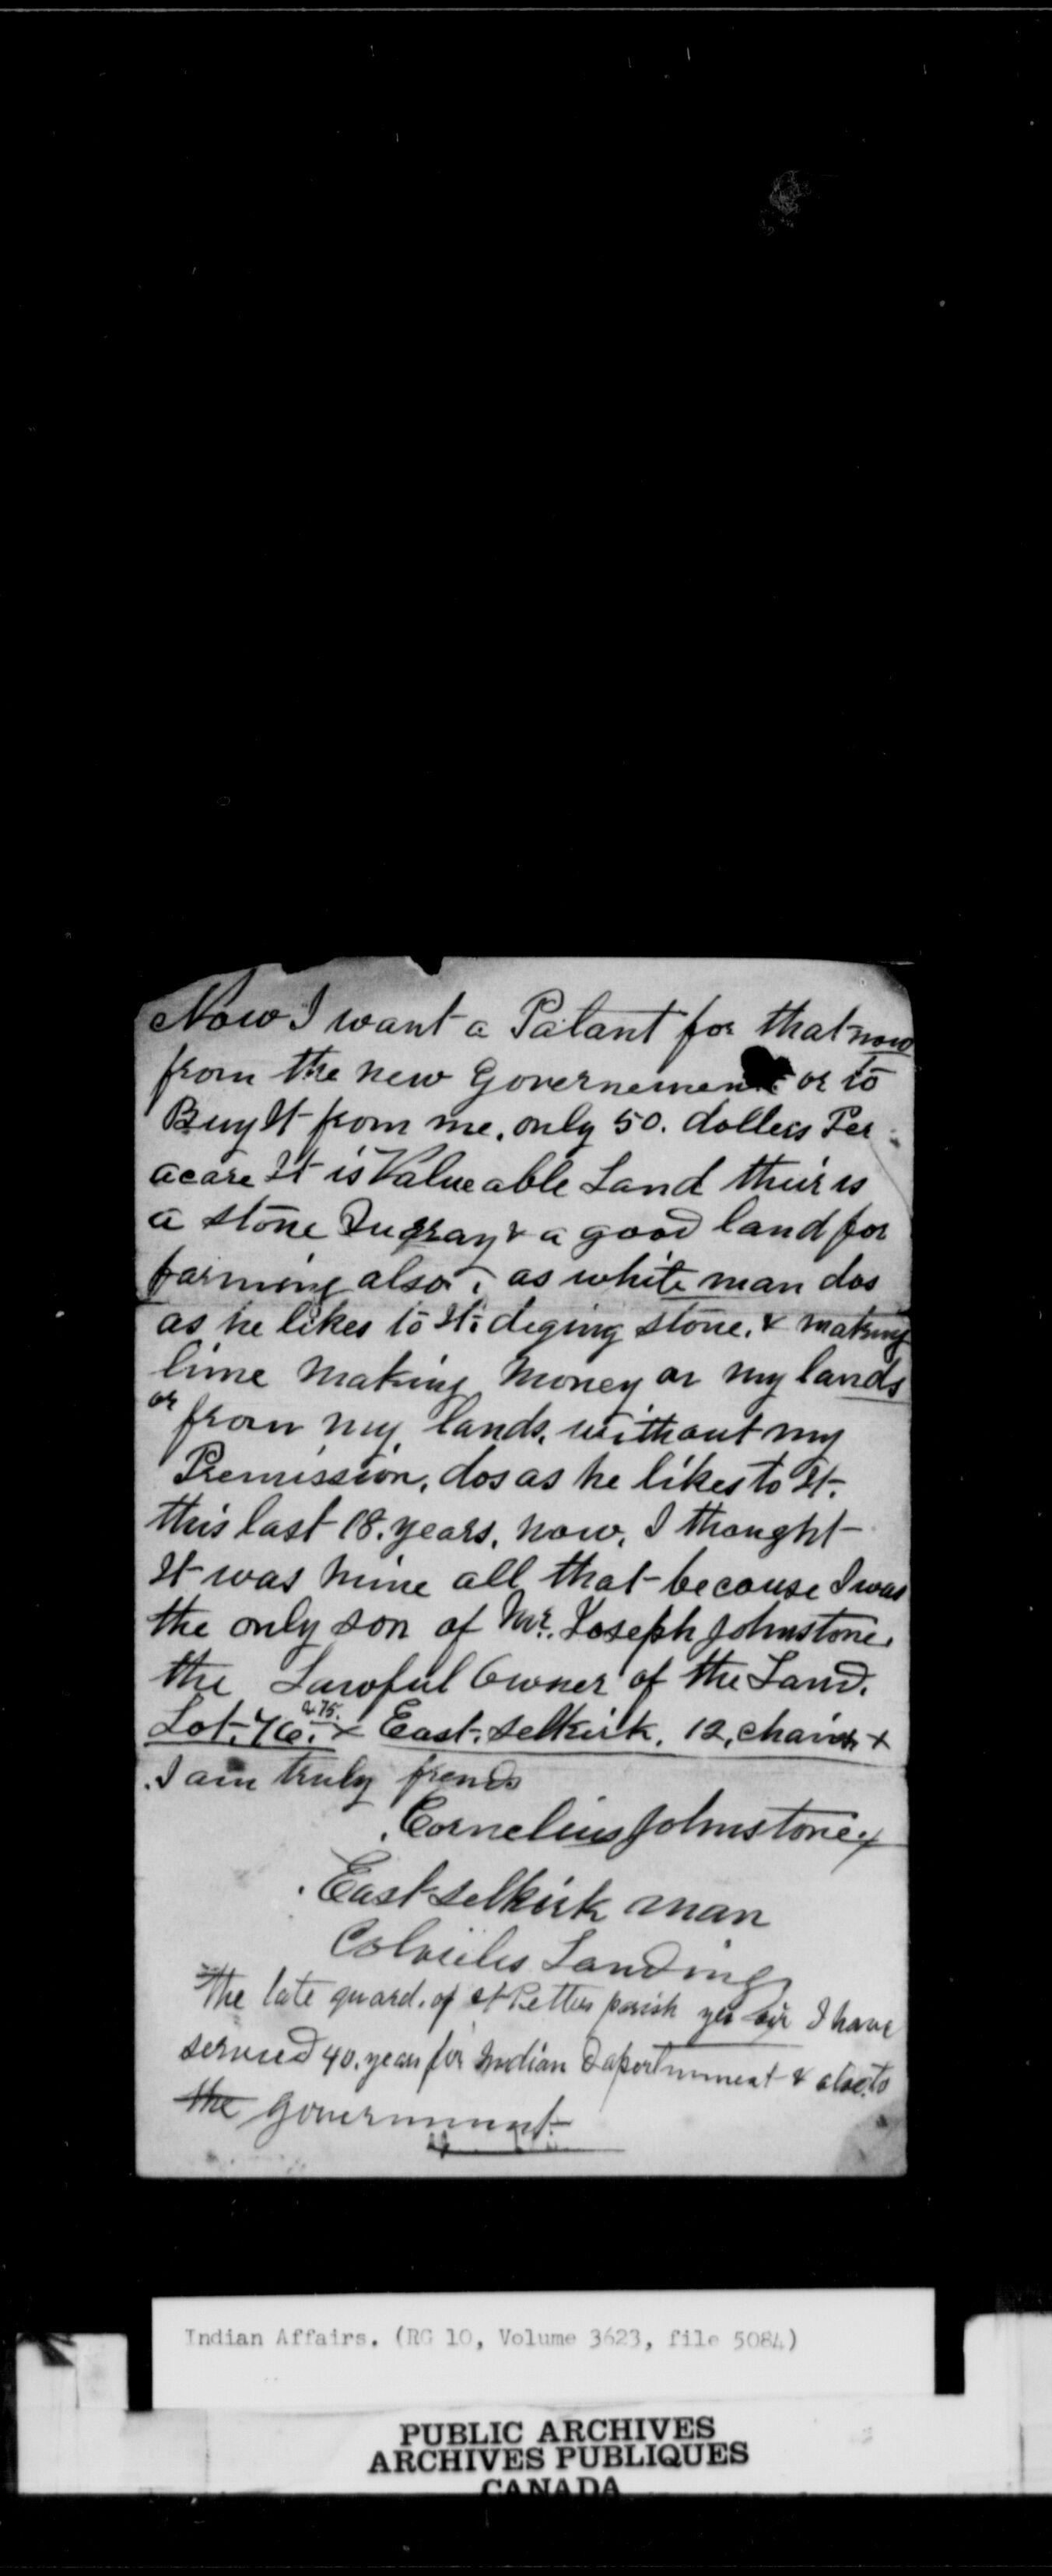 Now I want a Patant for that now
from the new Governement or to
Buy It from me, only 50. dollers Per
acare It is Valueable Land their is
a stone Qugray & a good land for
farming also, as white man dos
as he likes to It: deging stone, & making
lime making money on my lands
or from my lands, without my
Premission, dos as he likes to It.
this last 18. years, now, I thought
It was mine all that because I was
the only son of Mr. Joseph Johnstone.
the Lawful Owner of the Land.
Lot. 76. & 75. East. Selkirk. 12, chains +
I am truly frends
Cornelius Johnstone
East Selkirk man
Colviles Landing
The late guard. of St Petters parish yes sir I have
serveed 40. years for Indian Dapertmment & also, to
the government.
Indian Affairs. (RG 10, Volume 3623, file 5084)
PUBLIC ARCHIVES
ARCHIVES PUBLIQUES
CANADA